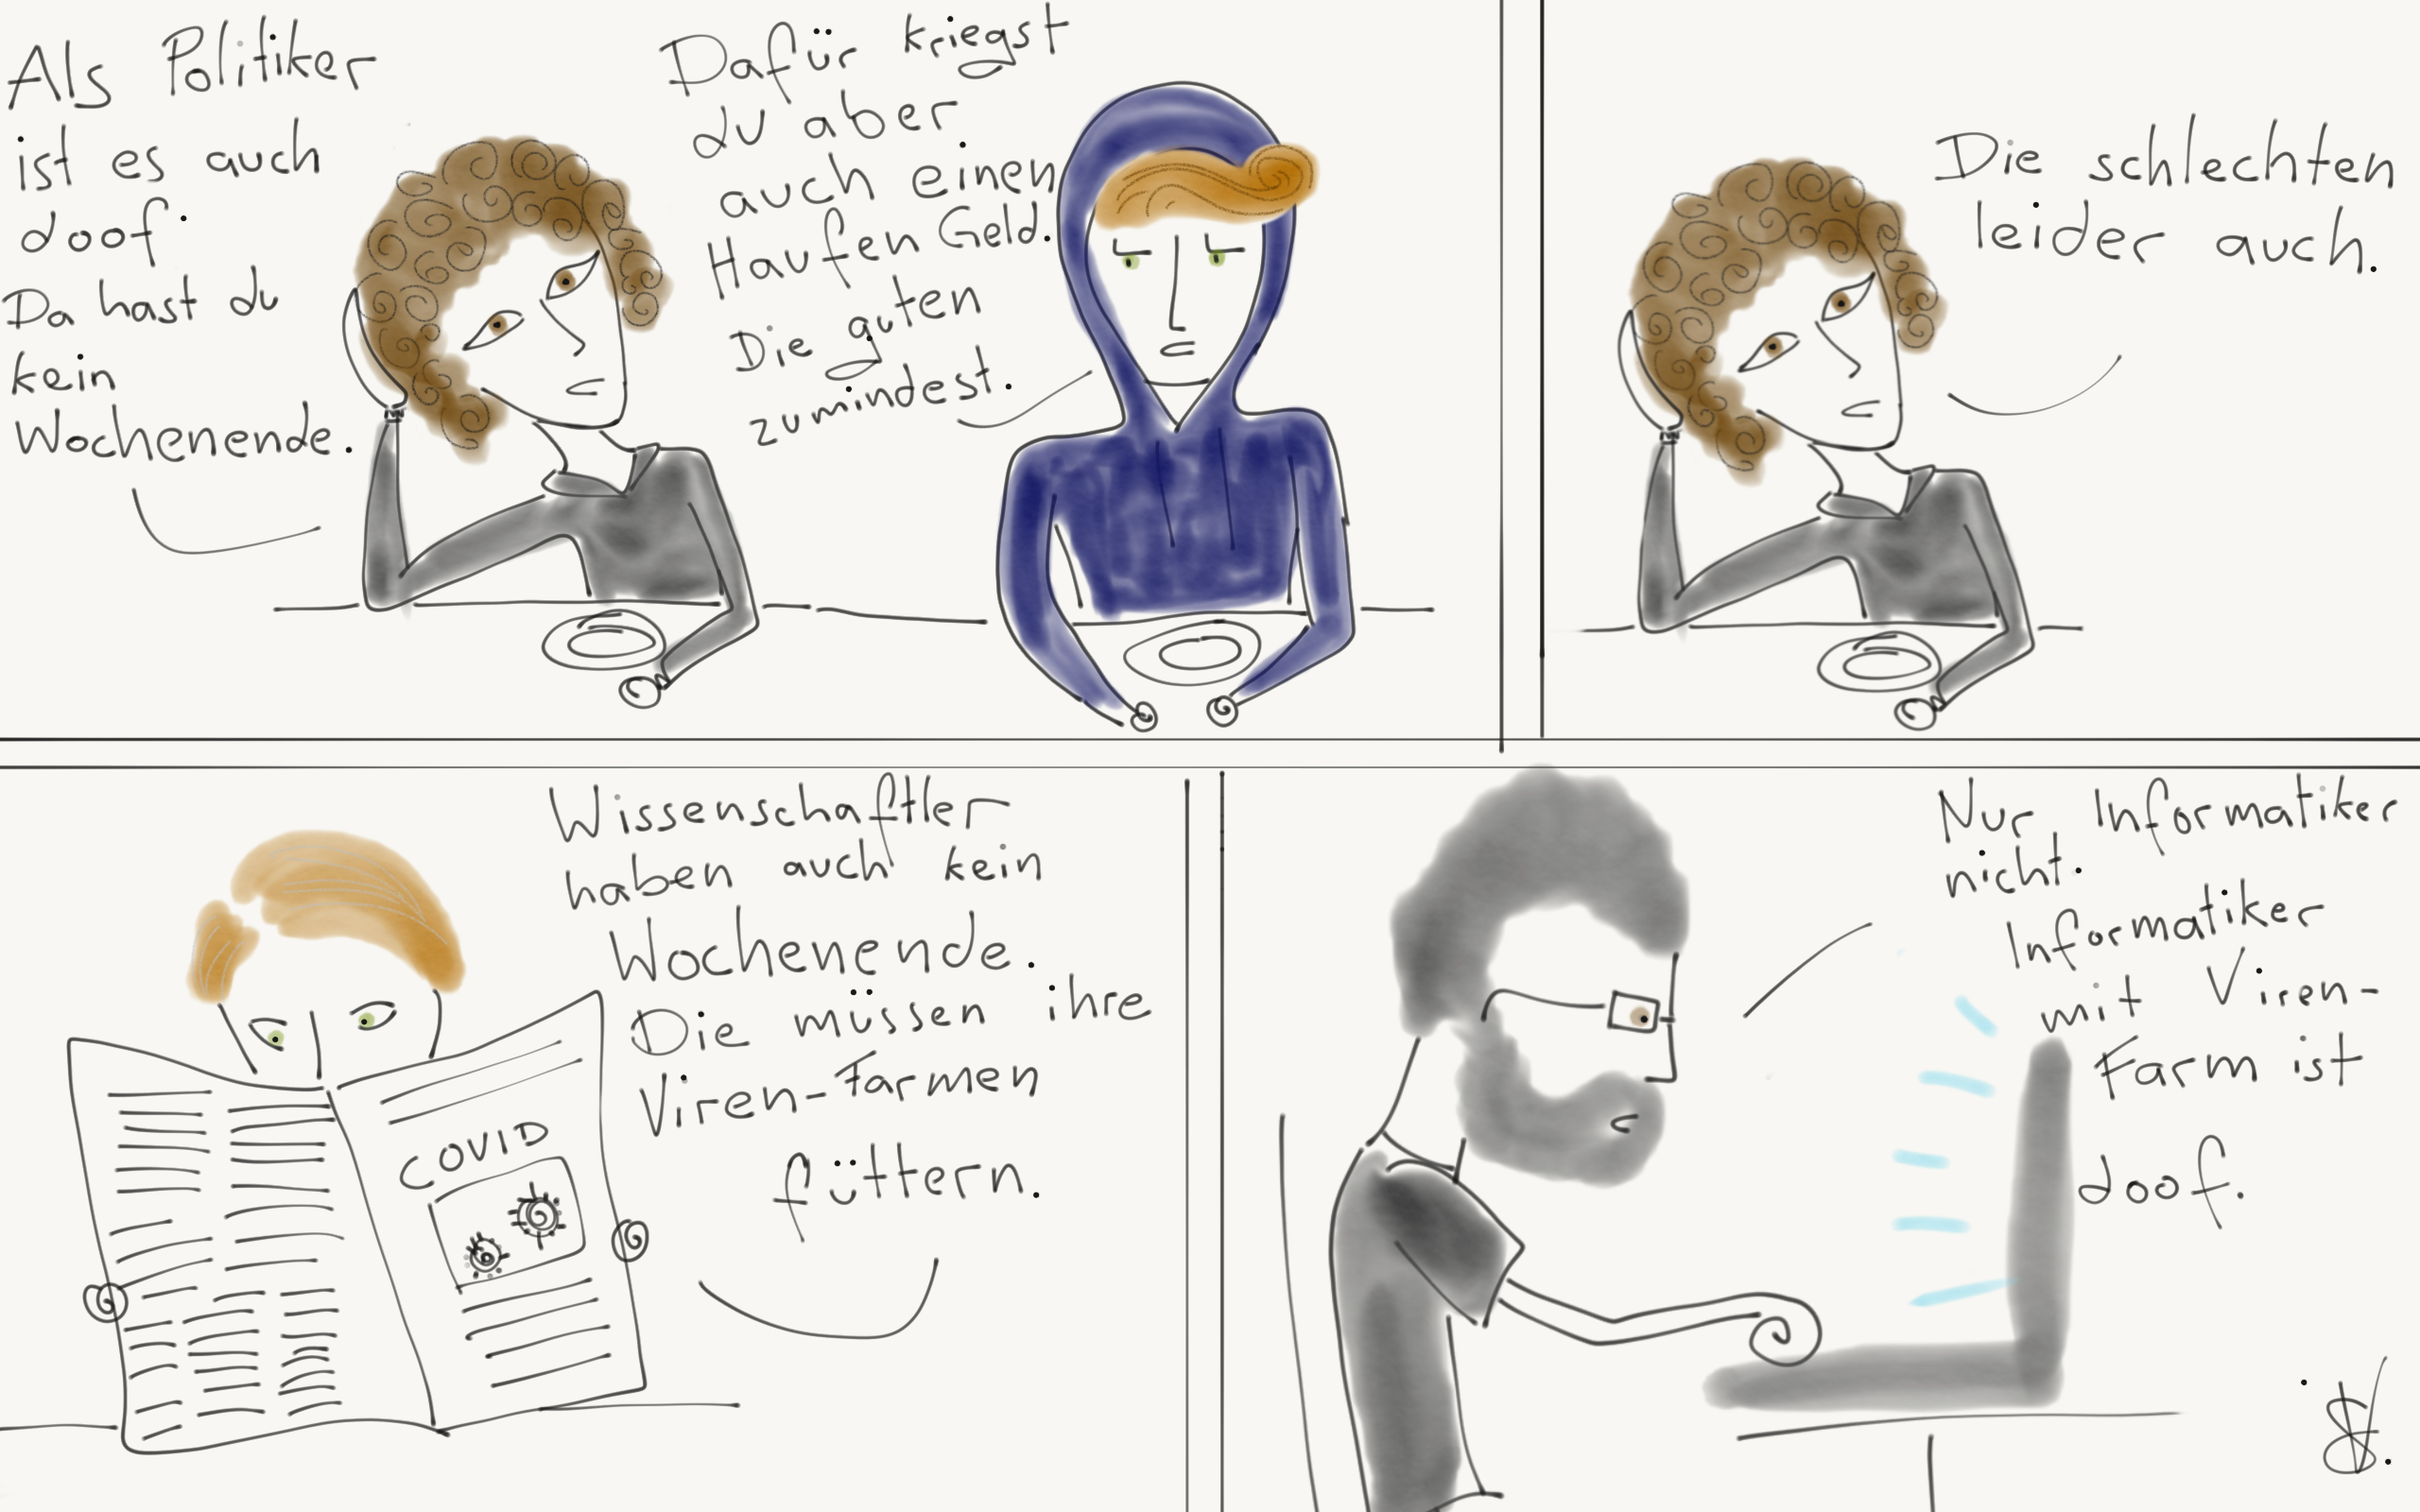 Als Politiker
ist es auch
doof.
Da hast du
kein
Wochenende.
Dafür kriegst
du aber
auch einen
Haufen Geld.
Die guten
zumindest.
Die schlechten
leider auch.
Wissenschaftler
haben auch kein
Wochenende.
Die müssen ihre
Viren-Farmen
füttern.
COVID
Nur Informatiker
nicht.
Informatiker
mit Viren-
Farm ist
doof.